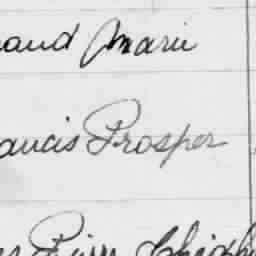 aud Marie
ancis Prosper
Pierre